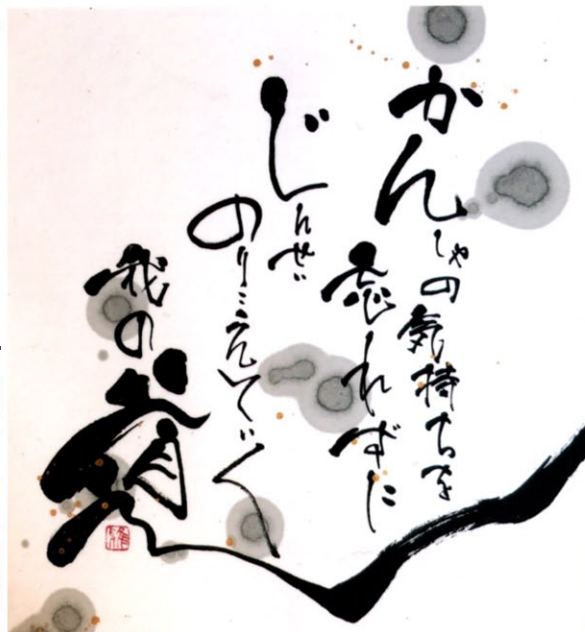 かんしゃの気持ちを
忘れずに
じんせい
のりこえていく
我の道